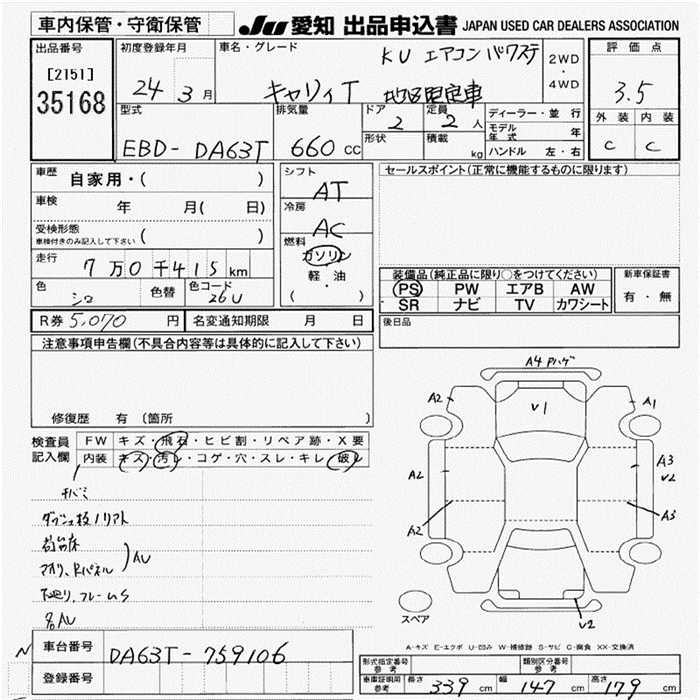 車内保管・守衛保管
JU 愛知 出品申込書 JAPAN USED CAR DEALERS ASSOCIATION
出品番号
[2151]
35168
初度登録年月
24 3 月
車名・グレード
KU エアコン パワステ
キャリィT
2WD
・
4WD
評価点
3.5
外装 内装
C C
型式
EBD- DA63T
排気量
660 CC
ドア
2
形状
定員
2 人
積載
kg
ディーラー・並行
モデル年式 年
ハンドル 左・右
車歴 自家用・( )
車検 年 月( 日)
受検形態
車検付きのみ記入して下さい ( )
走行 7万0千415 km
色 シロ
色替
色コード 26U
シフト
AT
冷房
AC
燃料
ガソリン
軽・油
( )
セールスポイント(正常に機能するものに限ります)
装備品(純正品に限り○をつけてください)
PS PW エアB AW
SR ナビ TV カワシート
新車保証書
有・無
後日品
R券 5,070 円
名変通知期限 月 日
注意事項申告欄(不具合内容等は具体的に記入して下さい)
修復歴 有 (箇所 )
検査員記入欄
FW キズ・飛石・ヒビ割・リペア跡・X要
内装 キズ・汚レ・コゲ・穴・スレ・キレ・破レ
AU
A4 Pハゲ
A2
V1
A1
A2
A3
V2
A2
A3
スペア
V2
A-キズ E-エクボ U-凹み W-補修跡 S-サビ C-腐食 XX-交換済
車台番号 DA63T-759106
登録番号
形式指定番号
参考
類別区分番号
参考
車庫証明用
参考
長さ 339 cm
幅 147 cm
高さ 179 cm